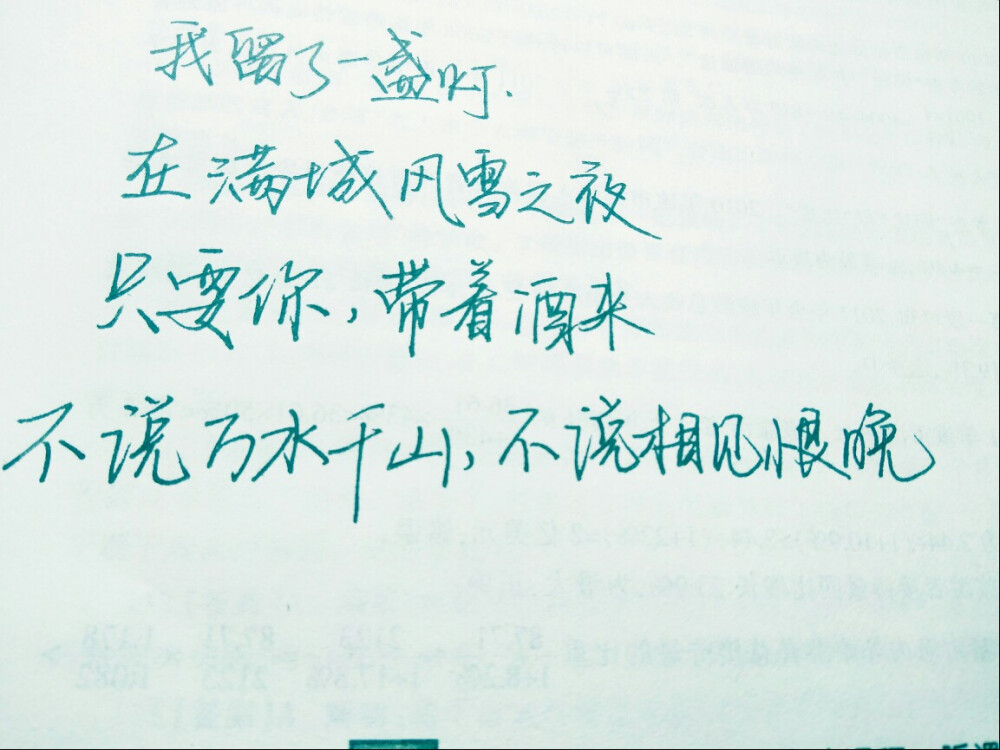 我留了一盏灯.
在满城风雪之夜
只要你,带着酒来
不说万水千山,不说相见恨晚